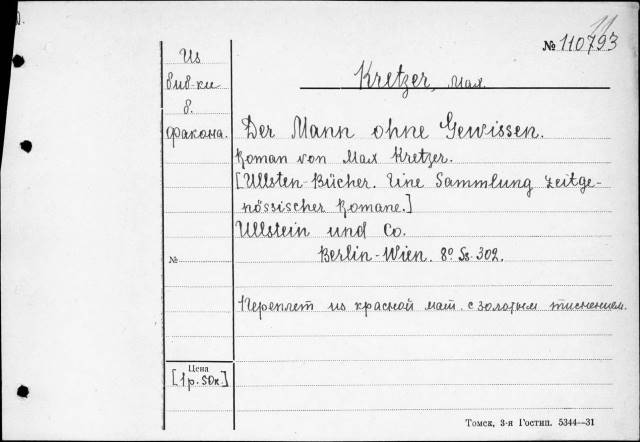 11
№ 110793
Из
биб-ки
б.
факона.
Kretzer, Max.
Der Mann ohne Gewissen.
Roman von Max Kretzer.
[Ullsten-Bücher. Eine Sammlung zeitge-
nössischer Romane.]
Ullstein und Co.
Berlin-Wien. 8° Ss. 302.
№
Переплет из красной мат. с золотым тиснением.
Цена
[1 р. 50к.]
Томск, 3-я Гостип. 5344—31